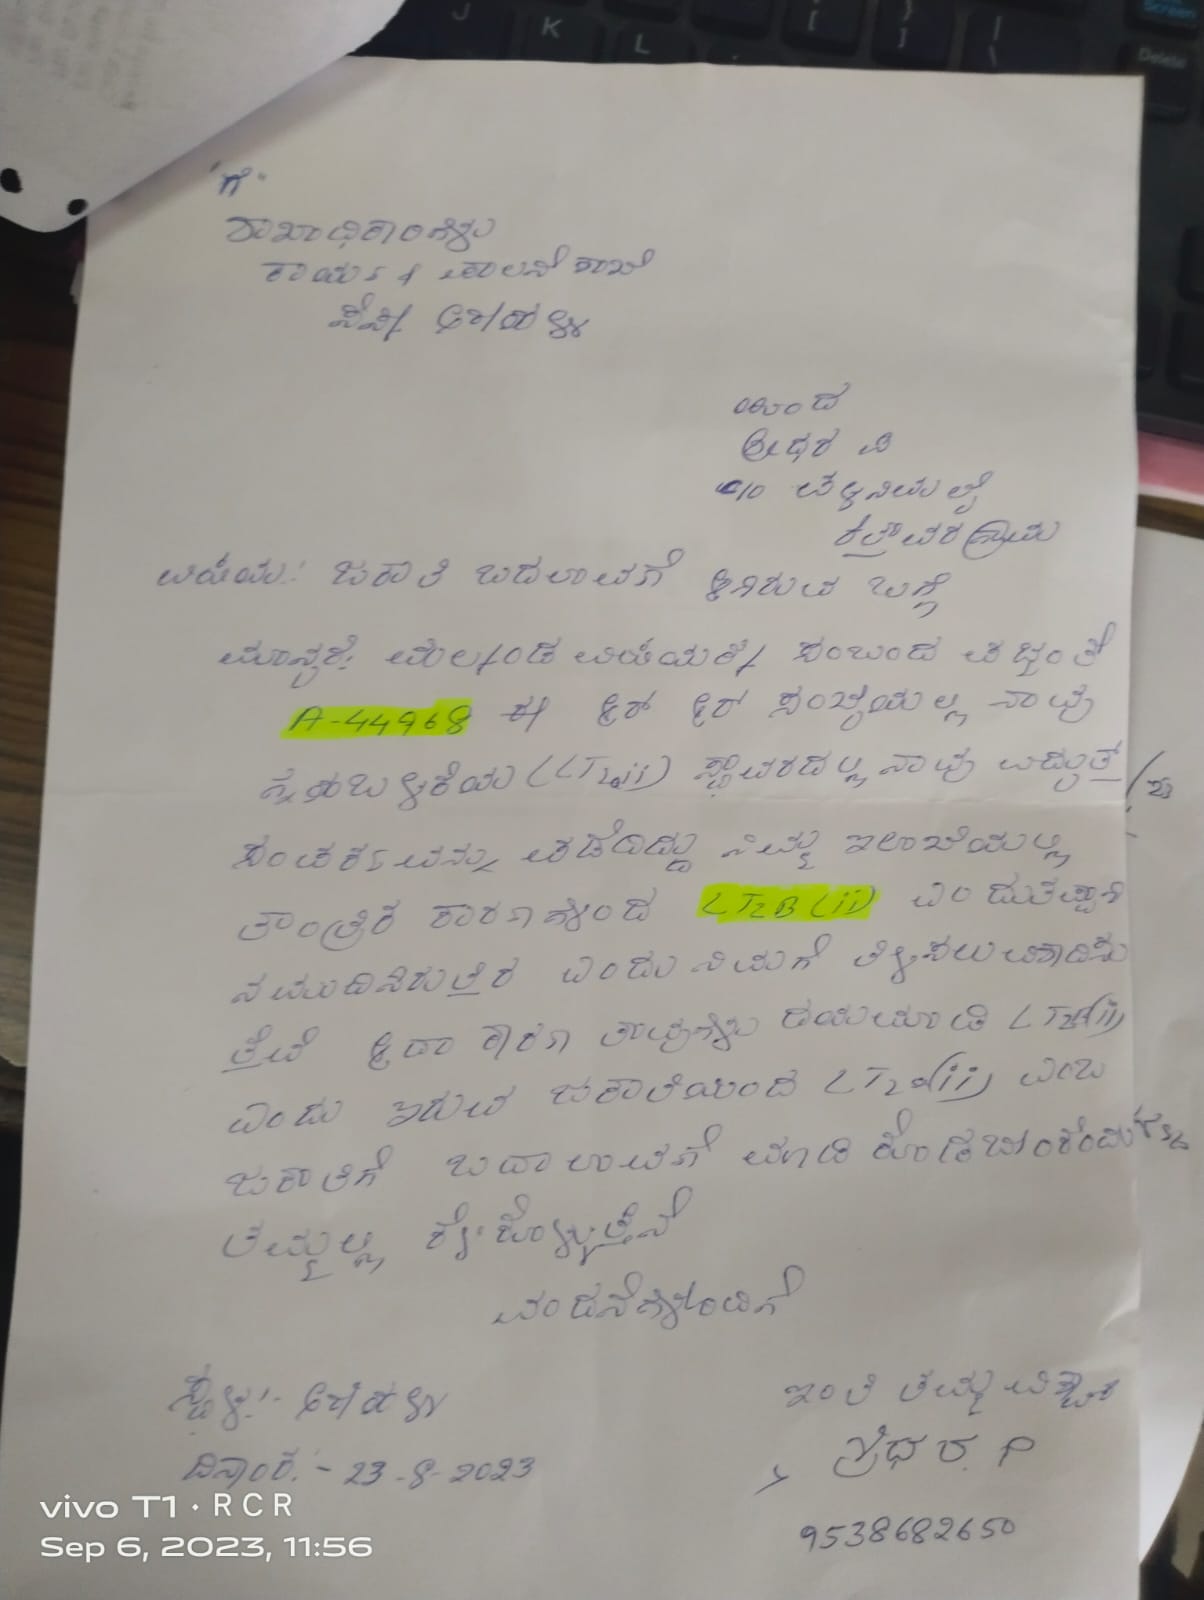 J
K
L
Delete
"ಗೆ"
ಶಾಖಾಧಿಕಾರಿಗಳು
ಕಾರ್ಯ & ಪಾಲನೆ ಶಾಖೆ
ಯಿಂದ
ಶ್ರೀಧರ ವಿ
ವಿಷಯ: ಜಕಾತಿ ಬದಲಾವಣೆ ಕೋರಿರುವ ಬಗ್ಗೆ
ಮಾನ್ಯರೆ, ಮೇಲ್ಕಂಡ ವಿಷಯಕ್ಕೆ ಸಂಬಂದ ಪಟ್ಟಂತೆ
A-44968 ಈ ಆರ್ ಆರ್ ಸಂಖ್ಯೆಯಲ್ಲಿ ನಾವು
ಗೃಹಬಳಕೆಯ (LT2aii) ಸ್ಥಾವರದಲ್ಲಿ ನಾವು ವಿದ್ಯುತ್
ಸಂಪರ್ಕವನ್ನು ಪಡೆದಿದ್ದು ನಿಮ್ಮ ಇಲಾಖೆಯಲ್ಲಿ
ತಾಂತ್ರಿಕ ಕಾರಣಗಳಿಂದ LT2B(ii) ಎಂದು ತಪ್ಪಾಗಿ
ನಮೂದಿಸಿರುತ್ತಾರೆ ಎಂದು ನಿಮಗೆ ತಿಳಿಸಲು
ಆದ ಕಾರಣ ತಾವುಗಳು ದಯಮಾಡಿ LT2B(ii)
ಎಂದು ಇರುವ ಜಕಾತಿಯಿಂದ LT2a(ii) ಎಂಬ
ಜಕಾತಿಗೆ ಬದಲಾವಣೆ ಮಾಡಿ
ತಮ್ಮಲ್ಲಿ ಕೇಳಿಕೊಳ್ಳುತ್ತೇನೆ
ವಂದನೆಗಳೊಂದಿಗೆ
ಸ್ಥಳ:-
ಇಂತಿ ತಮ್ಮ ವಿಶ್ವಾಸಿ
ದಿನಾಂಕ:- 23-8-2023
ಶ್ರೀಧರ. P
9538682650
vivo T1 · RCR
Sep 6, 2023, 11:56